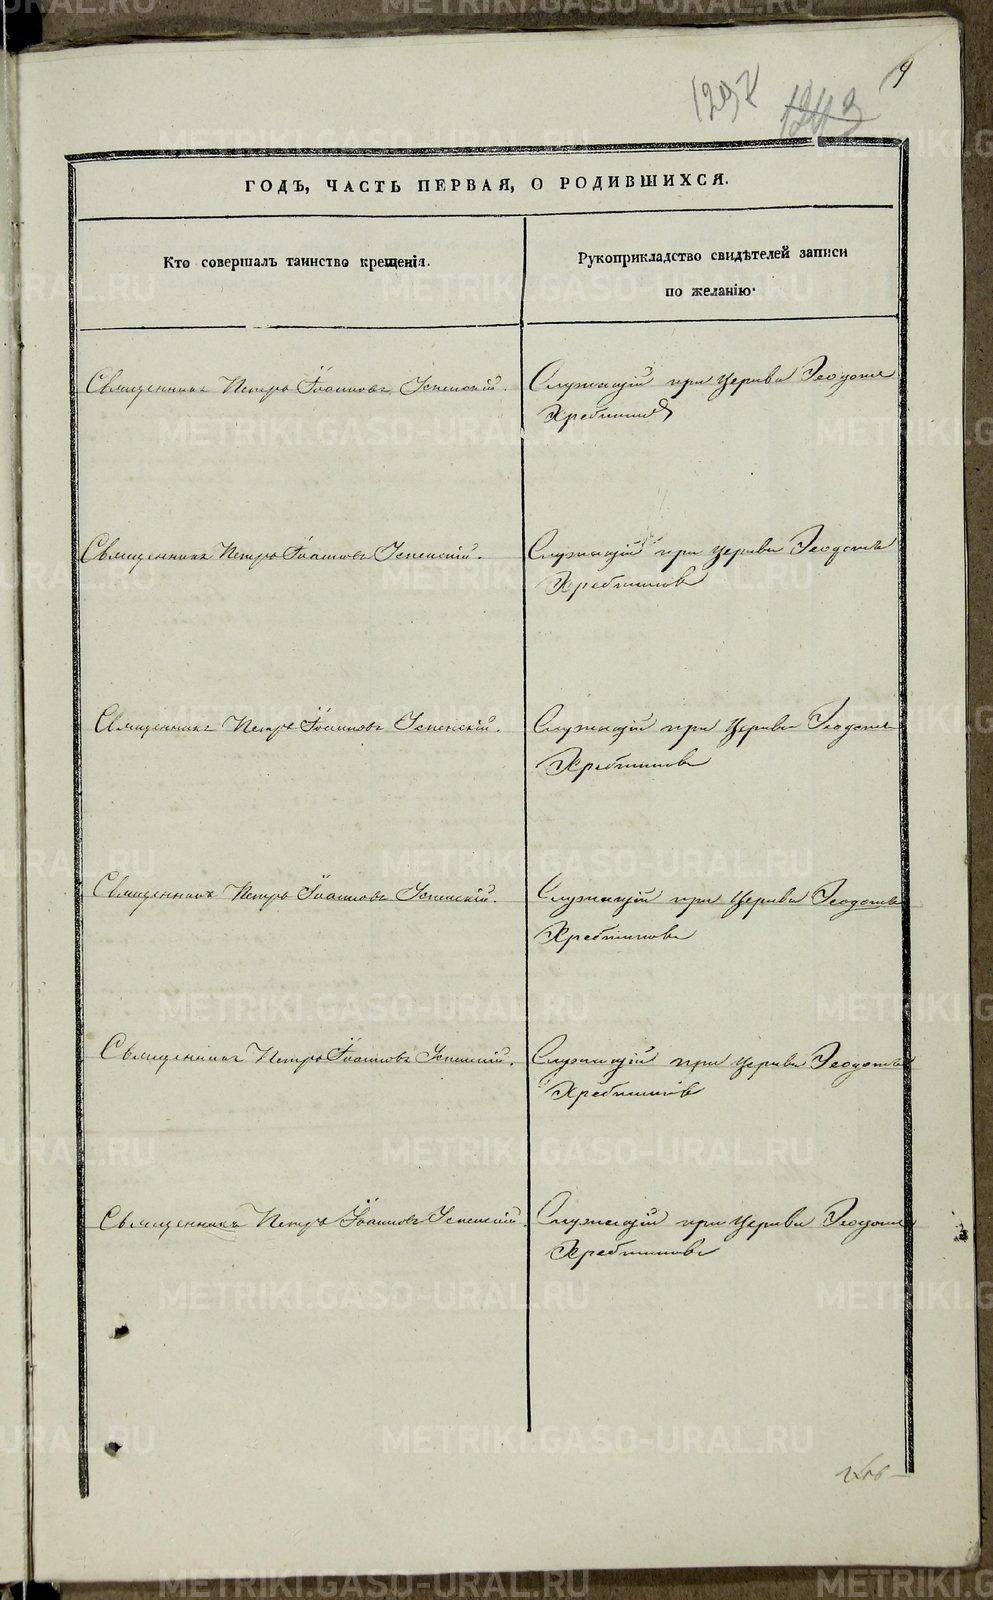 9
1297
1243
ГОДЪ, ЧАСТЬ ПЕРВАЯ, О РОДИВШИХСЯ.
Кто совершалъ таинство крещенія.
Рукоприкладство свидѣтелей записи
по желанію.
Священникъ Петръ Іоанновъ Успенскій.
Служащій при церкви Феодотъ
Хребтиковъ
Священникъ Петръ Іоанновъ Успенскій.
Служащій при церкви Феодотъ
Хребтиковъ
Священникъ Петръ Іоанновъ Успенскій.
Служащій при Церкви Феодотъ
Хребтиковъ
Священникъ Петръ Іоанновъ Успенскій.
Служащій при Церкви Феодотъ
Хребтиковъ
Священникъ Петръ Іоанновъ Успенскій.
Служащій при Церкви Феодотъ
Хребтиковъ
Священникъ Петръ Іоанновъ Успенскій.
Служащій при Церкви Феодотъ
Хребтиковъ
METRIKI.GASO-URAL.RU